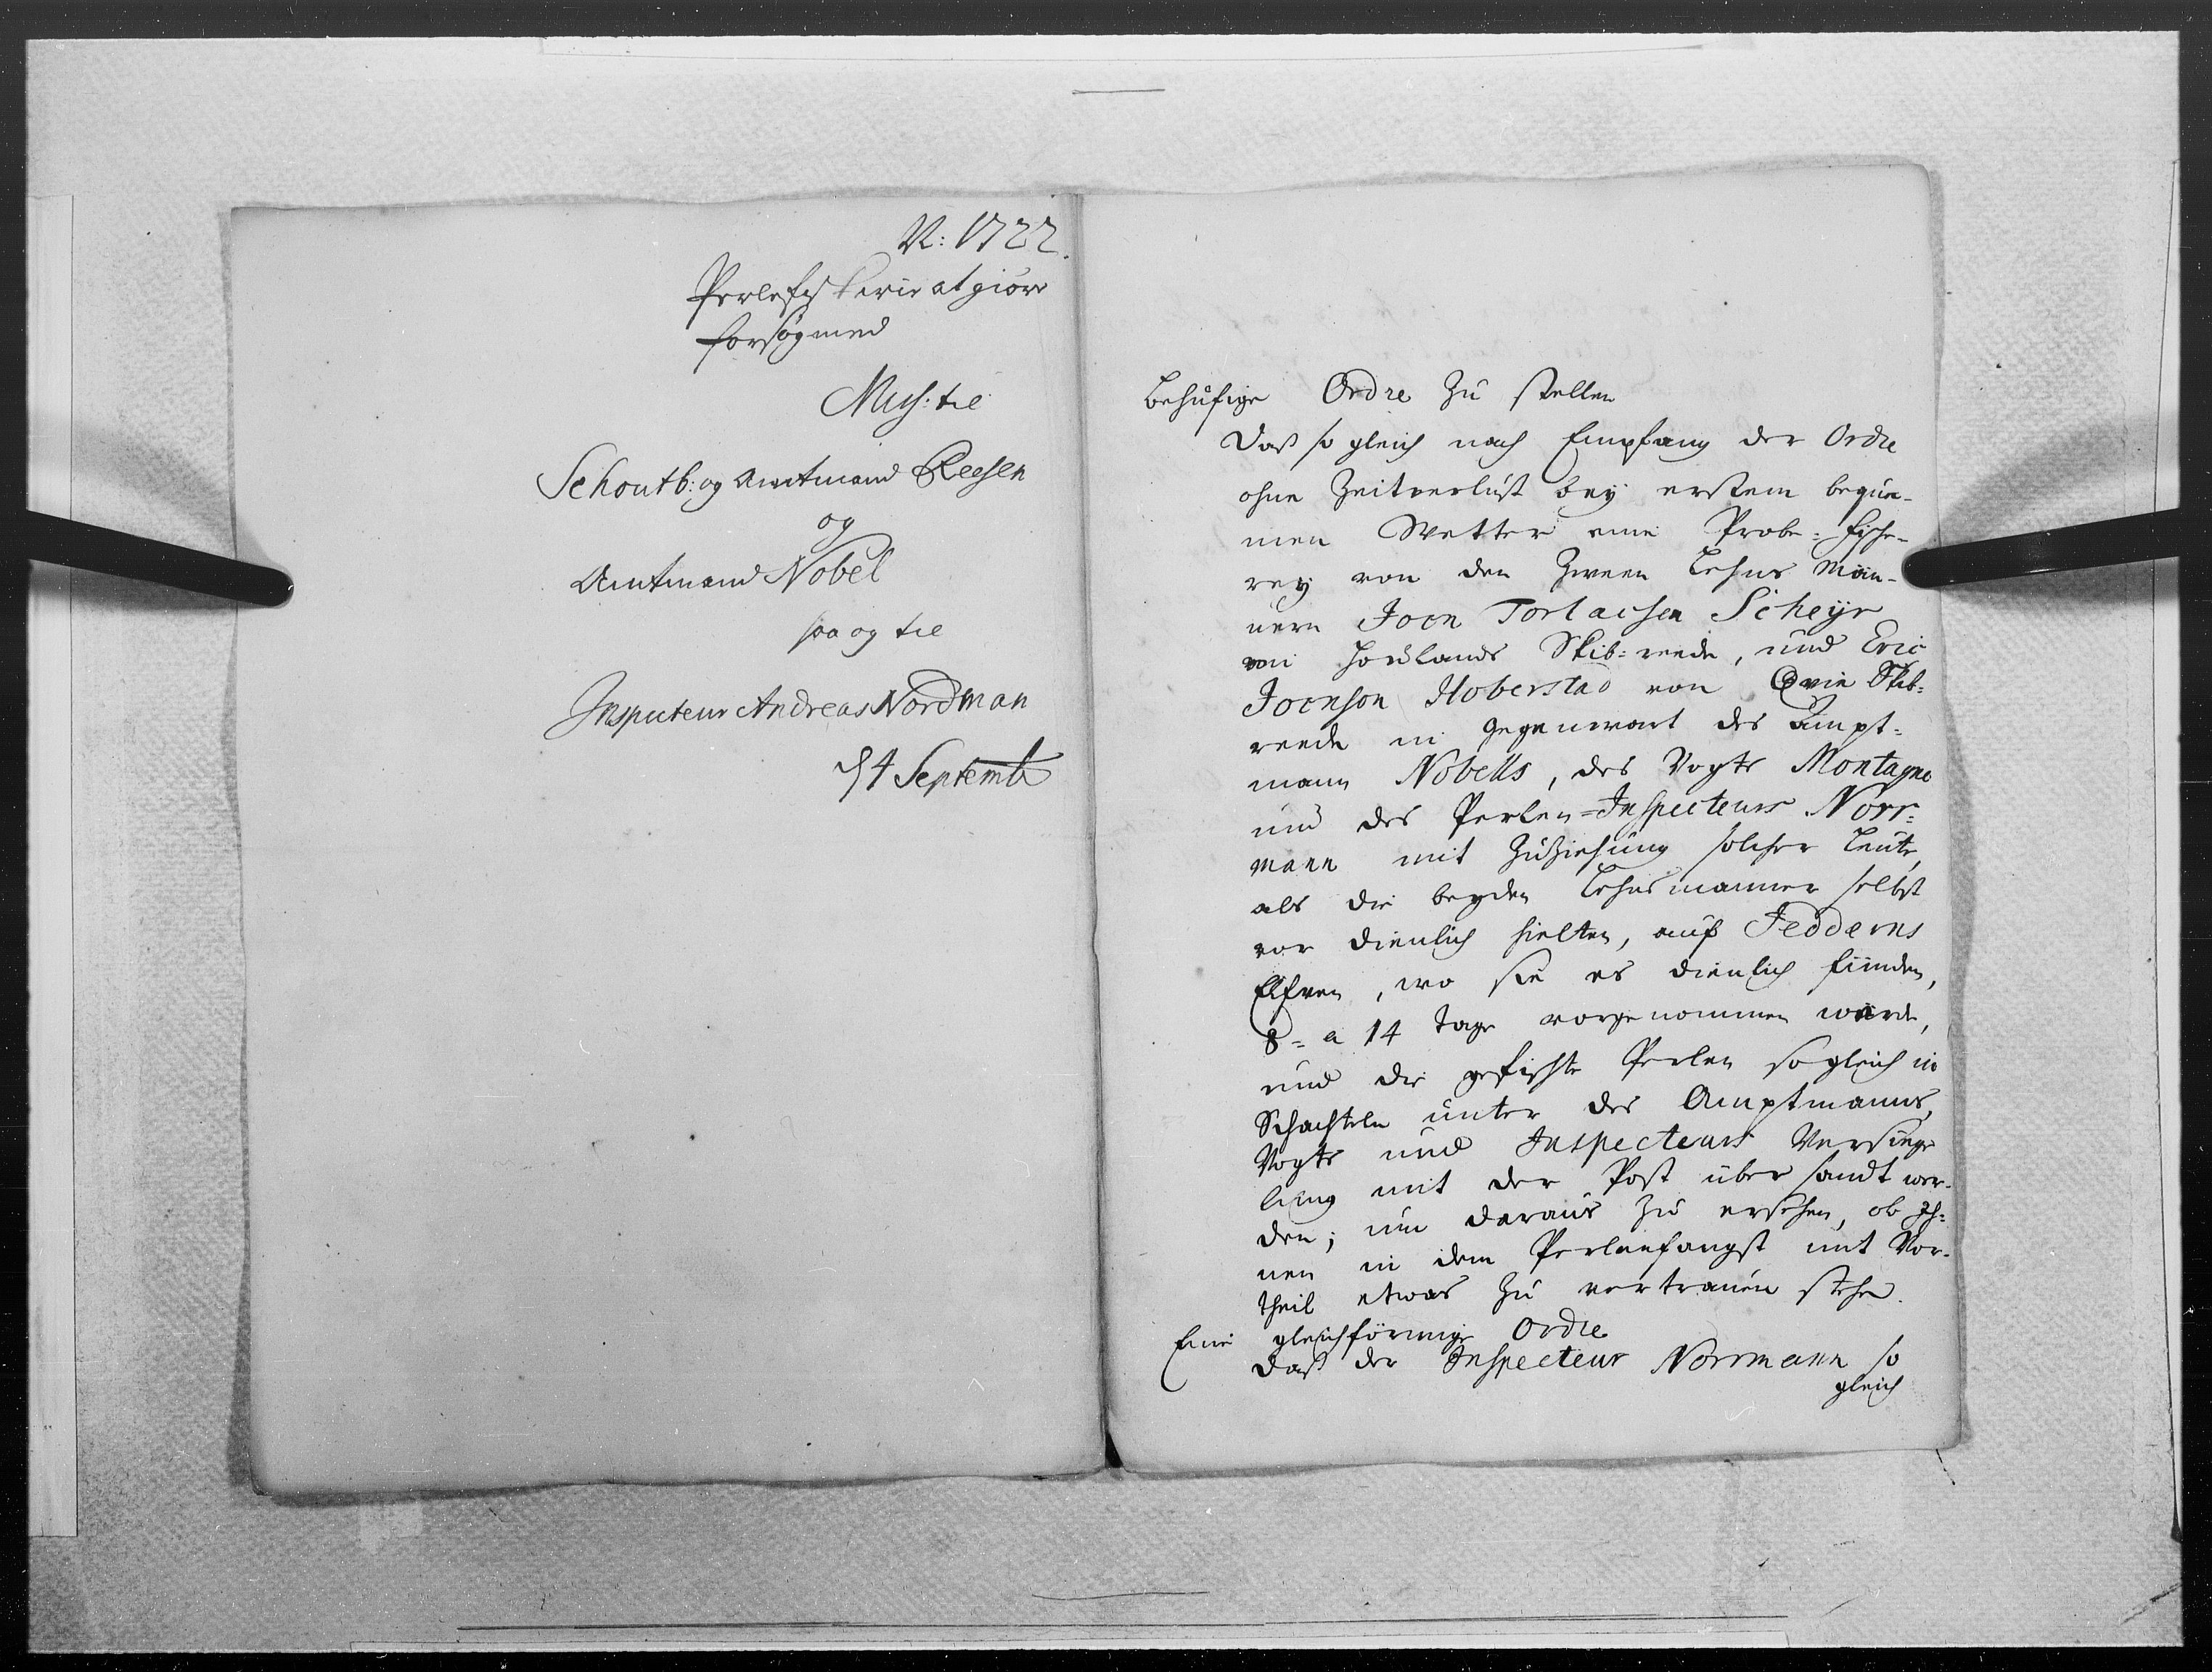 N: 1722.
Perlefiskerie at giøre
forsøg med
Miss: til
Schoutb: og Amtmand Reesen
og
Amtmand Nobel
saa og til
Inspecteur Andreas Nordman
d 4 Septemb
behufige Ordre zu stellen
Daß so gleich nach Empfang der Ordre
ohne Zeitverlust bey erstem bequä-
men Wetter eine Probe-Fische-
rey von den zween Lehns Män-
nern Joen Torlaessen Scheyr
von Jordlands Skib-reede, und Eric
Joenson Hoberstad von Qvin Skib-
reede in Gegenwart des Ampt-
mann Nobells, des Vogts Montagne
und des Perlen-Inspecteurs Norr-
mann mit Zuziehung solcher Leute,
als die beyden Lehnsmänner selbst
vor dienlich hielten, auf Jedderns
Elfven, wo sie es dienlich finden,
8- a 14 Tage vorgenommen würde,
und die gefischte Perlen so gleich in
Schachteln unter des Amptmanns,
Vogts und Inspecteurs Versiege
lung mit der Post über sandt wer-
den; um daraus zu ersehen, ob Ih-
nen in dem Perlenfangst mit Vor-
theil etwas zu vertrauen stehe.
Eine gleichförmige Ordre
daß der Inspecteur Norrmann so
gleich